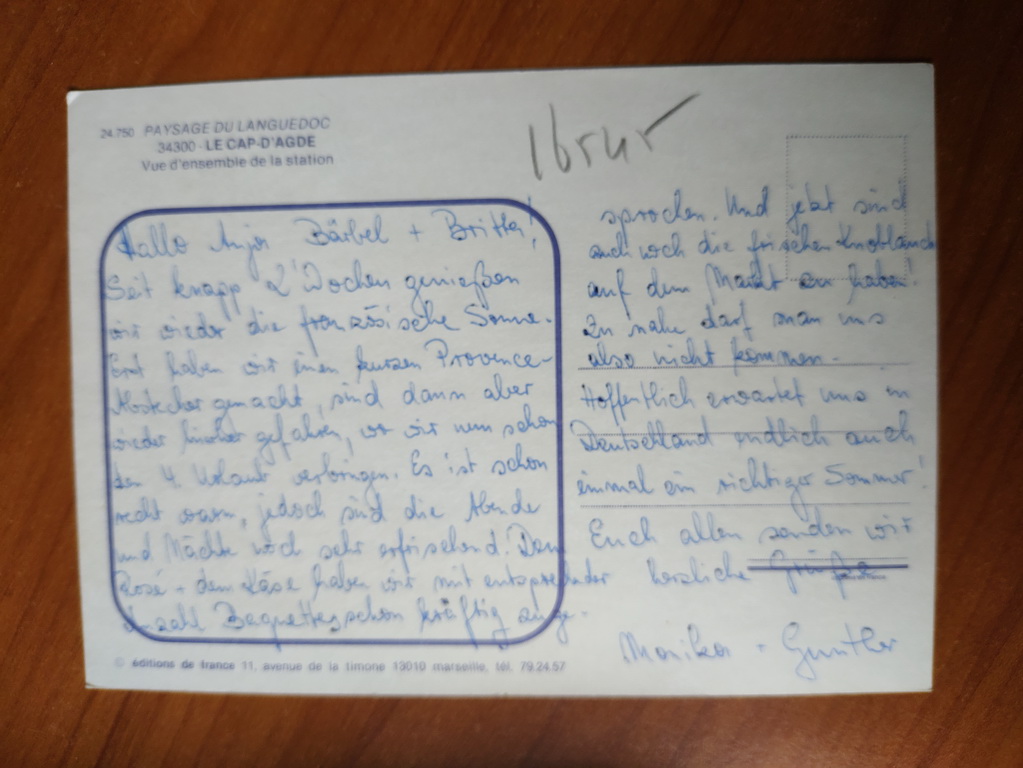 24.750 PAYSAGE DU LANGUEDOC
34300 - LE CAP-D'AGDE
Vue d'ensemble de la station
Hallo Anja Bärbel + Britta!
Seit knapp 2 Wochen genießen
wir wieder die französische Sonne.
Erst haben wir einen kurzen Provence-
Abstecher gemacht, sind dann aber
wieder hierher gefahren, wo wir nun schon
den 4. Urlaub verbringen. Es ist schon
recht warm, jedoch sind die Abende
und Nächte noch sehr erfrischend. Dem
Rosé + dem Käse haben wir mit entsprechender
Anzahl Baguettes schon kräftig zuge-
sprochen. Und jetzt sind
auch noch die frischen Knoblauch
auf dem Markt zu haben!
Zu nahe darf man uns
also nicht kommen.
Hoffentlich erwartet uns in
Deutschland endlich auch
einmal ein richtiger Sommer!
Euch allen senden wir
herzliche Grüße
Monika + Gunther
© éditions de france 11, avenue de la timone 13010 marseille, tél. 79.24.57